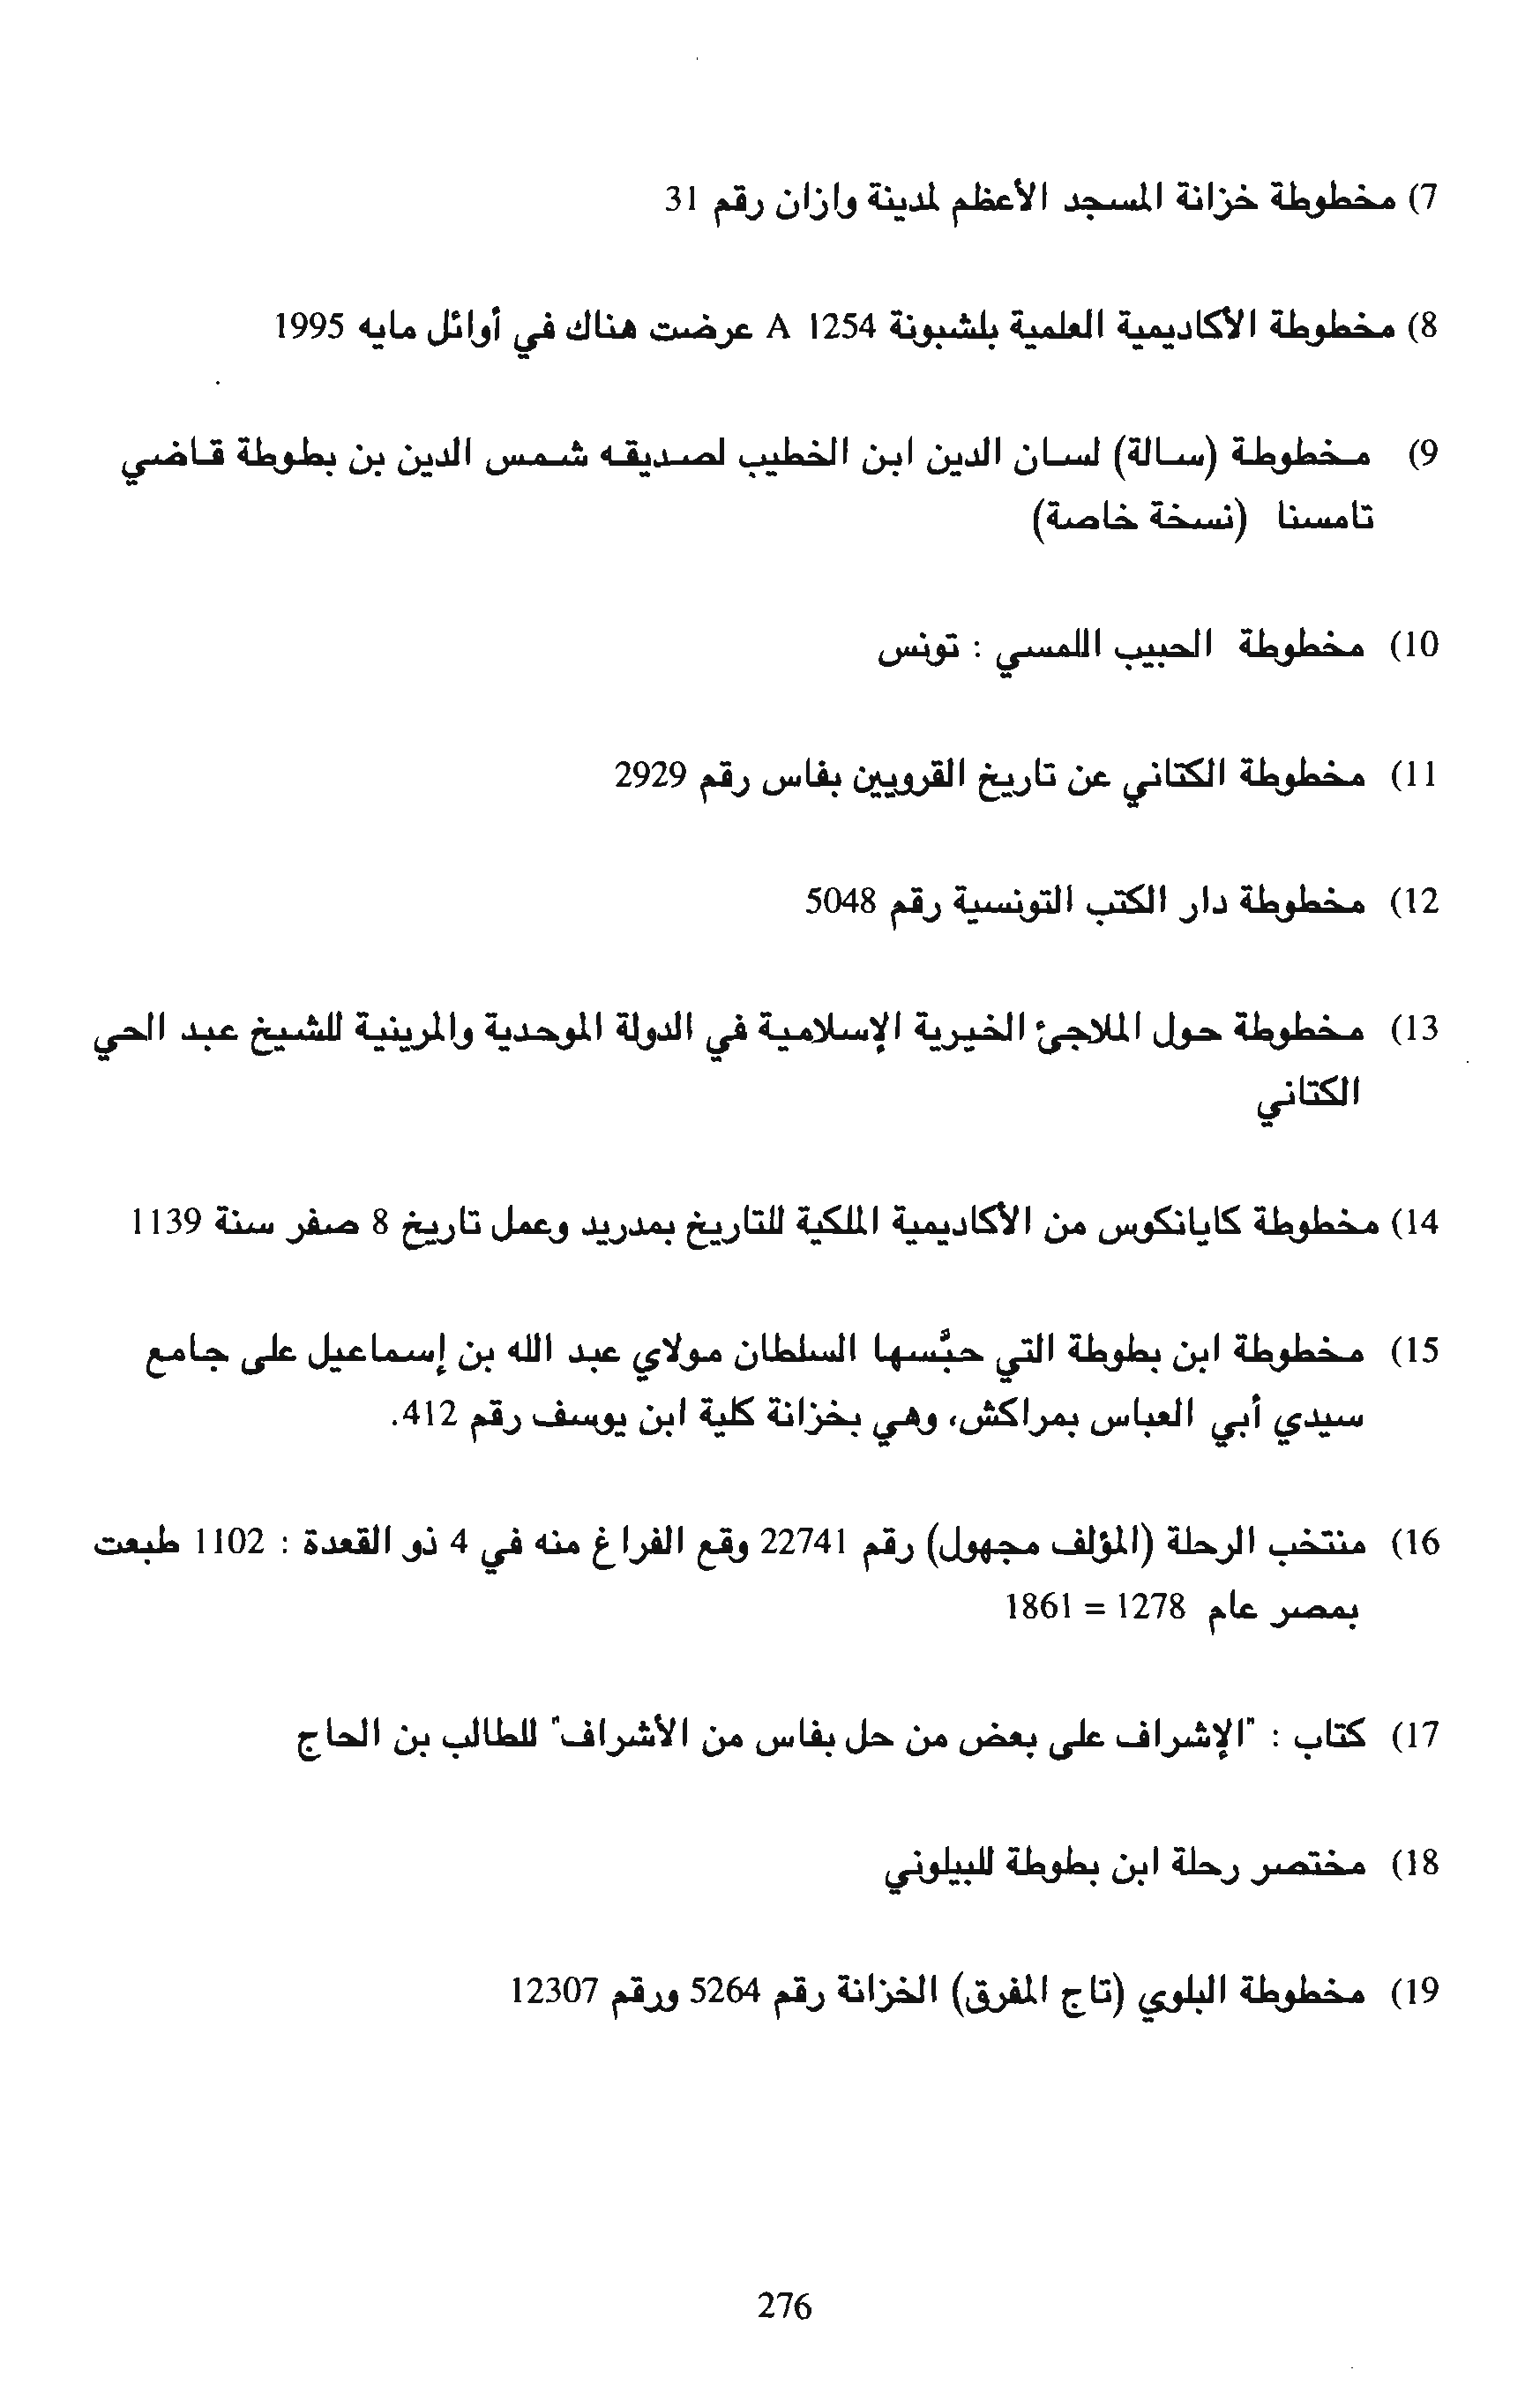 7) مخطوطة خزانة المسجد الأعظم لمدينة وازان رقم 31
8) مخطوطة الأكاديمية العلمية بلشبونة 1254 A عرضت هناك في أوائل مايه 1995
9) مخطوطة (رسالة) لسان الدين ابن الخطيب لصديقه شمس الدين بن بطوطة قاضي
تامسنا (نسخة خاصة)
10) مخطوطة الحبيب اللمسي : تونس
11) مخطوطة الكتاني عن تاريخ القرويين بفاس رقم 2929
12) مخطوطة دار الكتب التونسية رقم 5048
13) مخطوطة حول الملاجئ الخيرية الإسلامية في الدولة الموحدية والمرينية للشيخ عبد الحي
الكتاني
14) مخطوطة كايانكوس من الأكاديمية الملكية للتاريخ بمدريد وعمل تاريخ 8 صفر سنة 1139
15) مخطوطة ابن بطوطة التي حبَّسها السلطان مولاي عبد الله بن إسماعيل على جامع
سيدي أبي العباس بمراكش، وهي بخزانة كلية ابن يوسف رقم 412.
16) منتخب الرحلة (المؤلف مجهول) رقم 22741 وقع الفراغ منه في 4 ذو القعدة : 1102 طبعت
بمصر عام 1278 = 1861
17) كتاب : "الإشراف على بعض من حل بفاس من الأشراف" للطالب بن الحاج
18) مختصر رحلة ابن بطوطة للبيلوني
19) مخطوطة البلوي (تاج المفرق) الخزانة رقم 5264 ورقم 12307
276